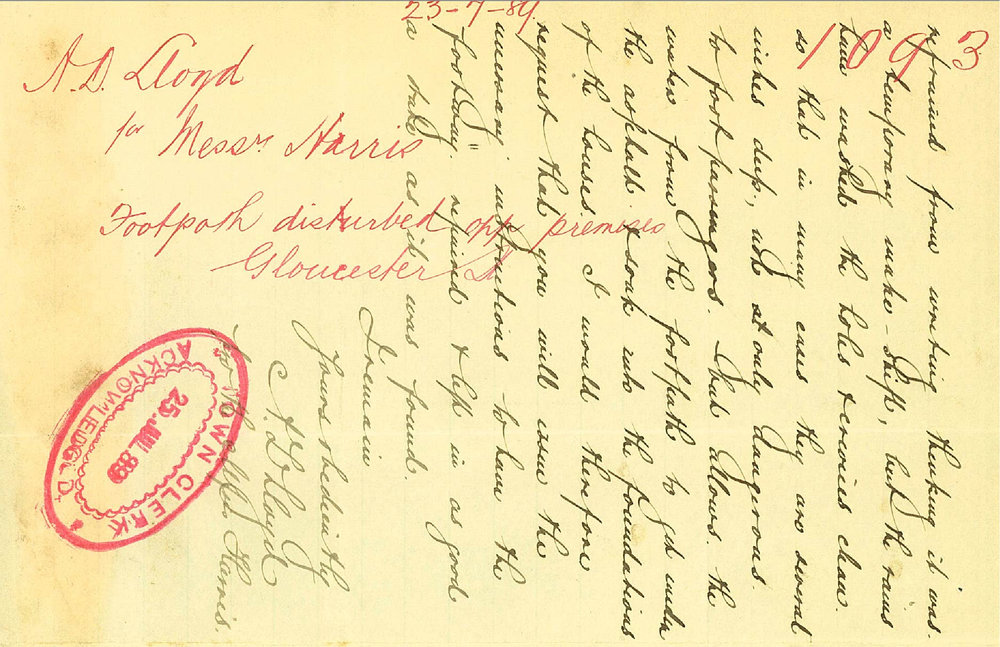 23-7-89.
1093
A. D. Lloyd
for Messrs Harris
Footpath disturbed opp premises
Gloucester St
refrained from writing thinking it was
a temporary make-shift, but the rains
have washed the holes & crevices clean
so that in many cases they are several
inches deep, not only dangerous
to foot passengers. but allows the
water from the footpath to get under
the asphalt & soak into the foundations
of the houses I would therefore
request that you will issue the
necessary instructions to have the
footway" repaired & left in as good
a state as it was found.
I remain
Yours obediently
A. D. Lloyd
Harris.
TOWN CLERK
ACKNOWLEDG'D.
25. JUL 89